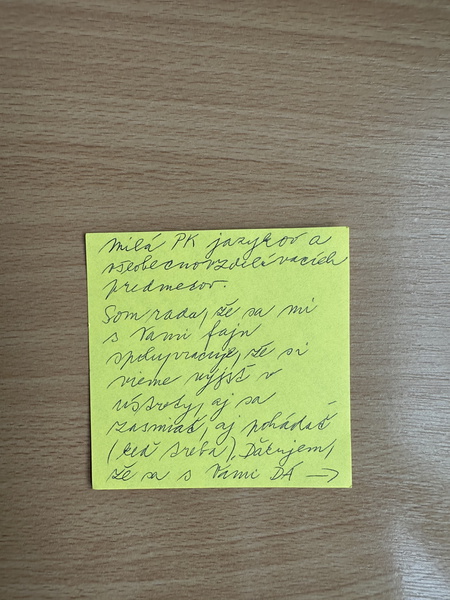 Milá PK jazykov a
všeobecnovzdelávacích
predmetov.
Som rada, že sa mi
s Vami fajn
spolupracuje, že si
vieme vyjsť v
ústrety, aj sa
zasmiať, aj pohádať
(keď treba). Ďakujem,
že sa s Vami DÁ →